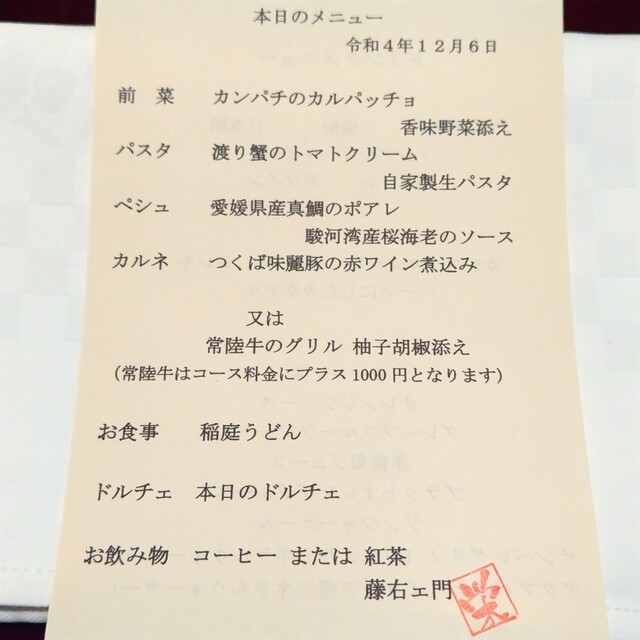 本日のメニュー
令和４年１２月６日
前　菜　カンパチのカルパッチョ
香味野菜添え
パスタ　渡り蟹のトマトクリーム
自家製生パスタ
ペシュ　愛媛県産真鯛のポアレ
駿河湾産桜海老のソース
カルネ　つくば味麗豚の赤ワイン煮込み
又は
常陸牛のグリル 柚子胡椒添え
（常陸牛はコース料金にプラス 1000 円となります）
お食事　稲庭うどん
ドルチェ　本日のドルチェ
お飲み物　コーヒー または 紅茶
藤右ェ門
栄